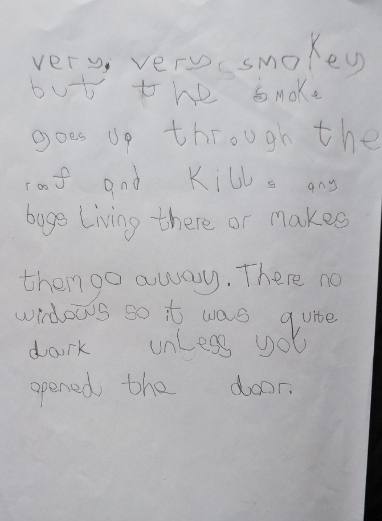 very, very smokey
but the smoke
goes up through the
roof and kills any
bugs living there or makes
them go away. There no
windows so it was quite
dark unless you
opened the door.